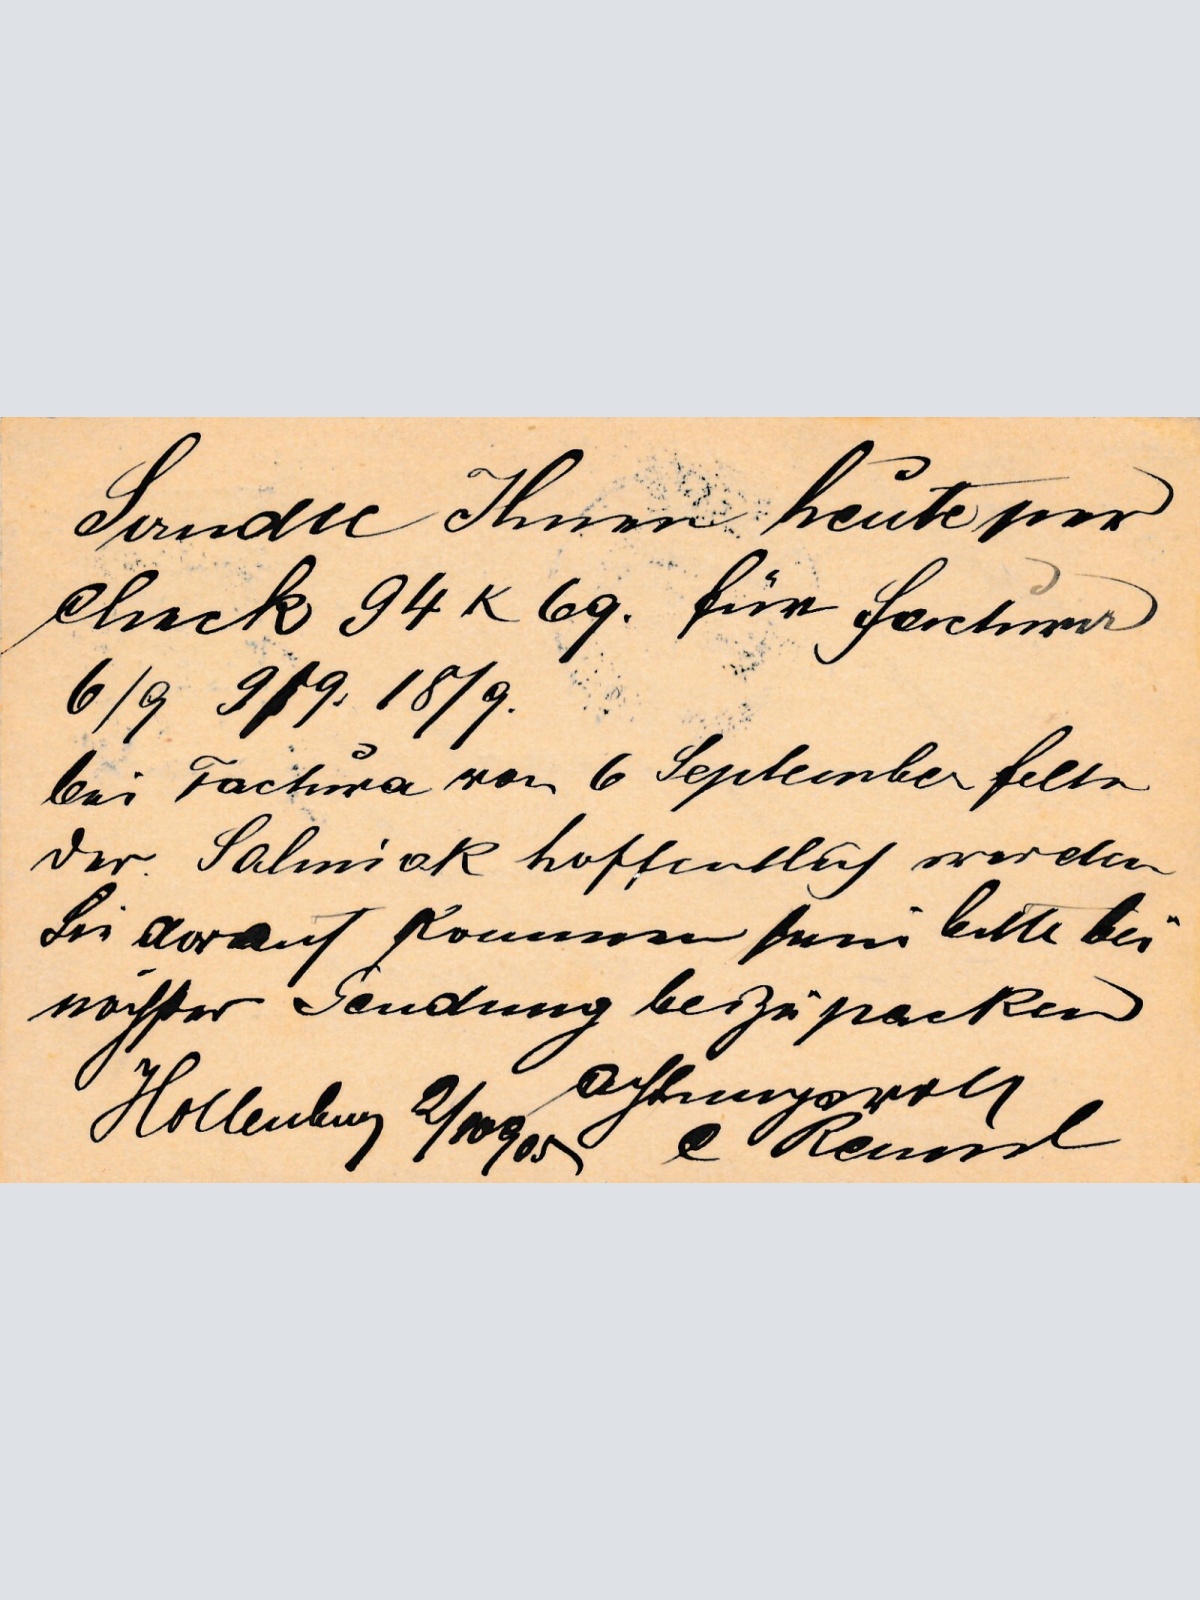 Sandte Ihnen heute per
Check 94 K 69. für Factura
6/9 9/9. 18/9.
bei Factura von 6 September felte
der Salmiak hoffentlich werden
Sie darauf kommen sein bitte bei
nächster Sendung beizupacken
achtungsvoll
Hollenburg 2/10 905
C